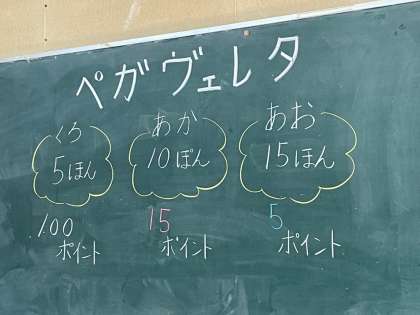 ペガヴェレタ
くろ
5ほん
100
ポイント
あか
10ぽん
15
ポイント
あお
15ほん
5
ポイント